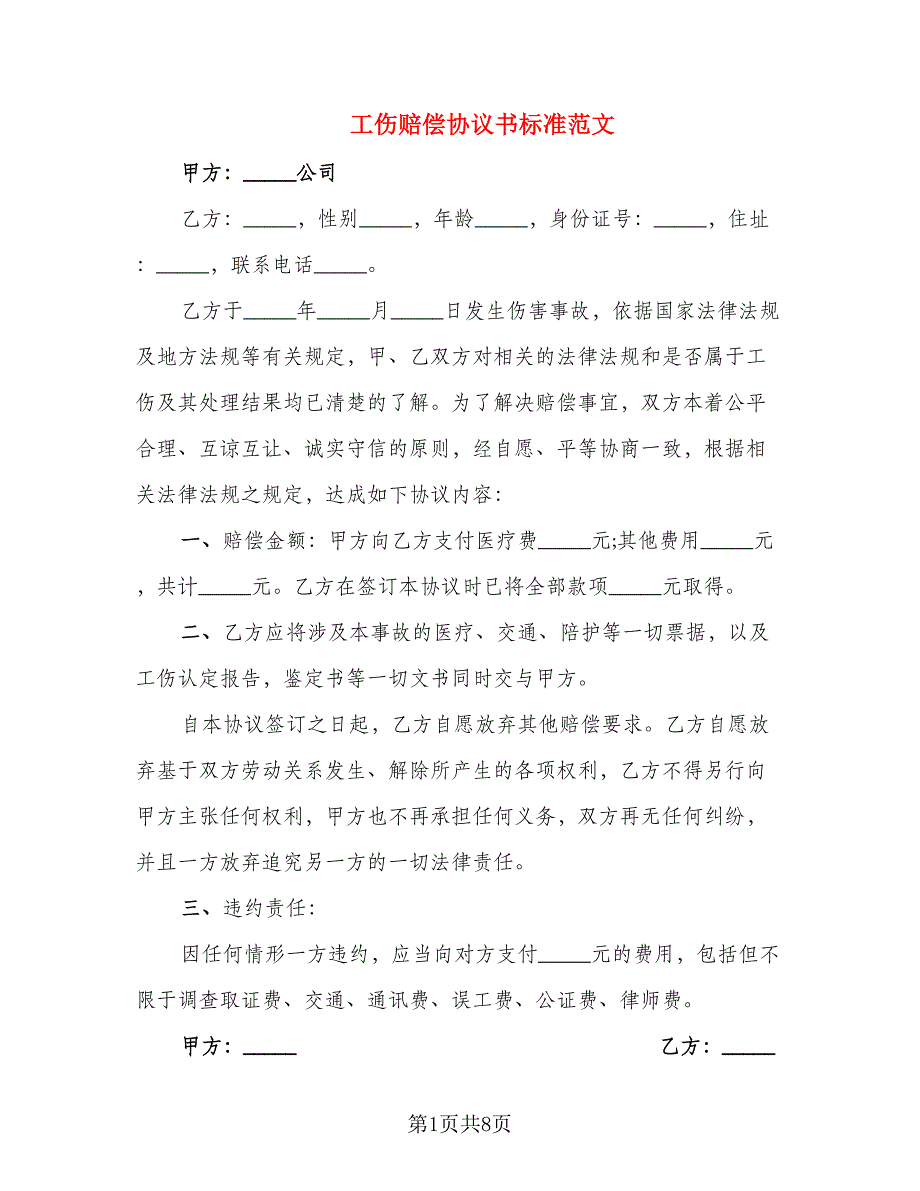 工伤赔偿协议书标准范文
甲方：_____公司
乙方：_____，性别_____，年龄_____，身份证号：_____，住址
：_____，联系电话_____。
乙方于_____年_____月_____日发生伤害事故，依据国家法律法规
及地方法规等有关规定，甲、乙双方对相关的法律法规和是否属于工
伤及其处理结果均已清楚的了解。为了解决赔偿事宜，双方本着公平
合理、互谅互让、诚实守信的原则，经自愿、平等协商一致，根据相
关法律法规之规定，达成如下协议内容：
一、赔偿金额：甲方向乙方支付医疗费_____元;其他费用_____元
，共计_____元。乙方在签订本协议时已将全部款项_____元取得。
二、乙方应将涉及本事故的医疗、交通、陪护等一切票据，以及
工伤认定报告，鉴定书等一切文书同时交与甲方。
自本协议签订之日起，乙方自愿放弃其他赔偿要求。乙方自愿放
弃基于双方劳动关系发生、解除所产生的各项权利，乙方不得另行向
甲方主张任何权利，甲方也不再承担任何义务，双方再无任何纠纷，
并且一方放弃追究另一方的一切法律责任。
三、违约责任：
因任何情形一方违约，应当向对方支付_____元的费用，包括但不
限于调查取证费、交通、通讯费、误工费、公证费、律师费。
甲方：_____ 乙方：_____
第1页共8页